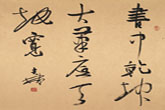 書中乾坤
大筆底天
地寬